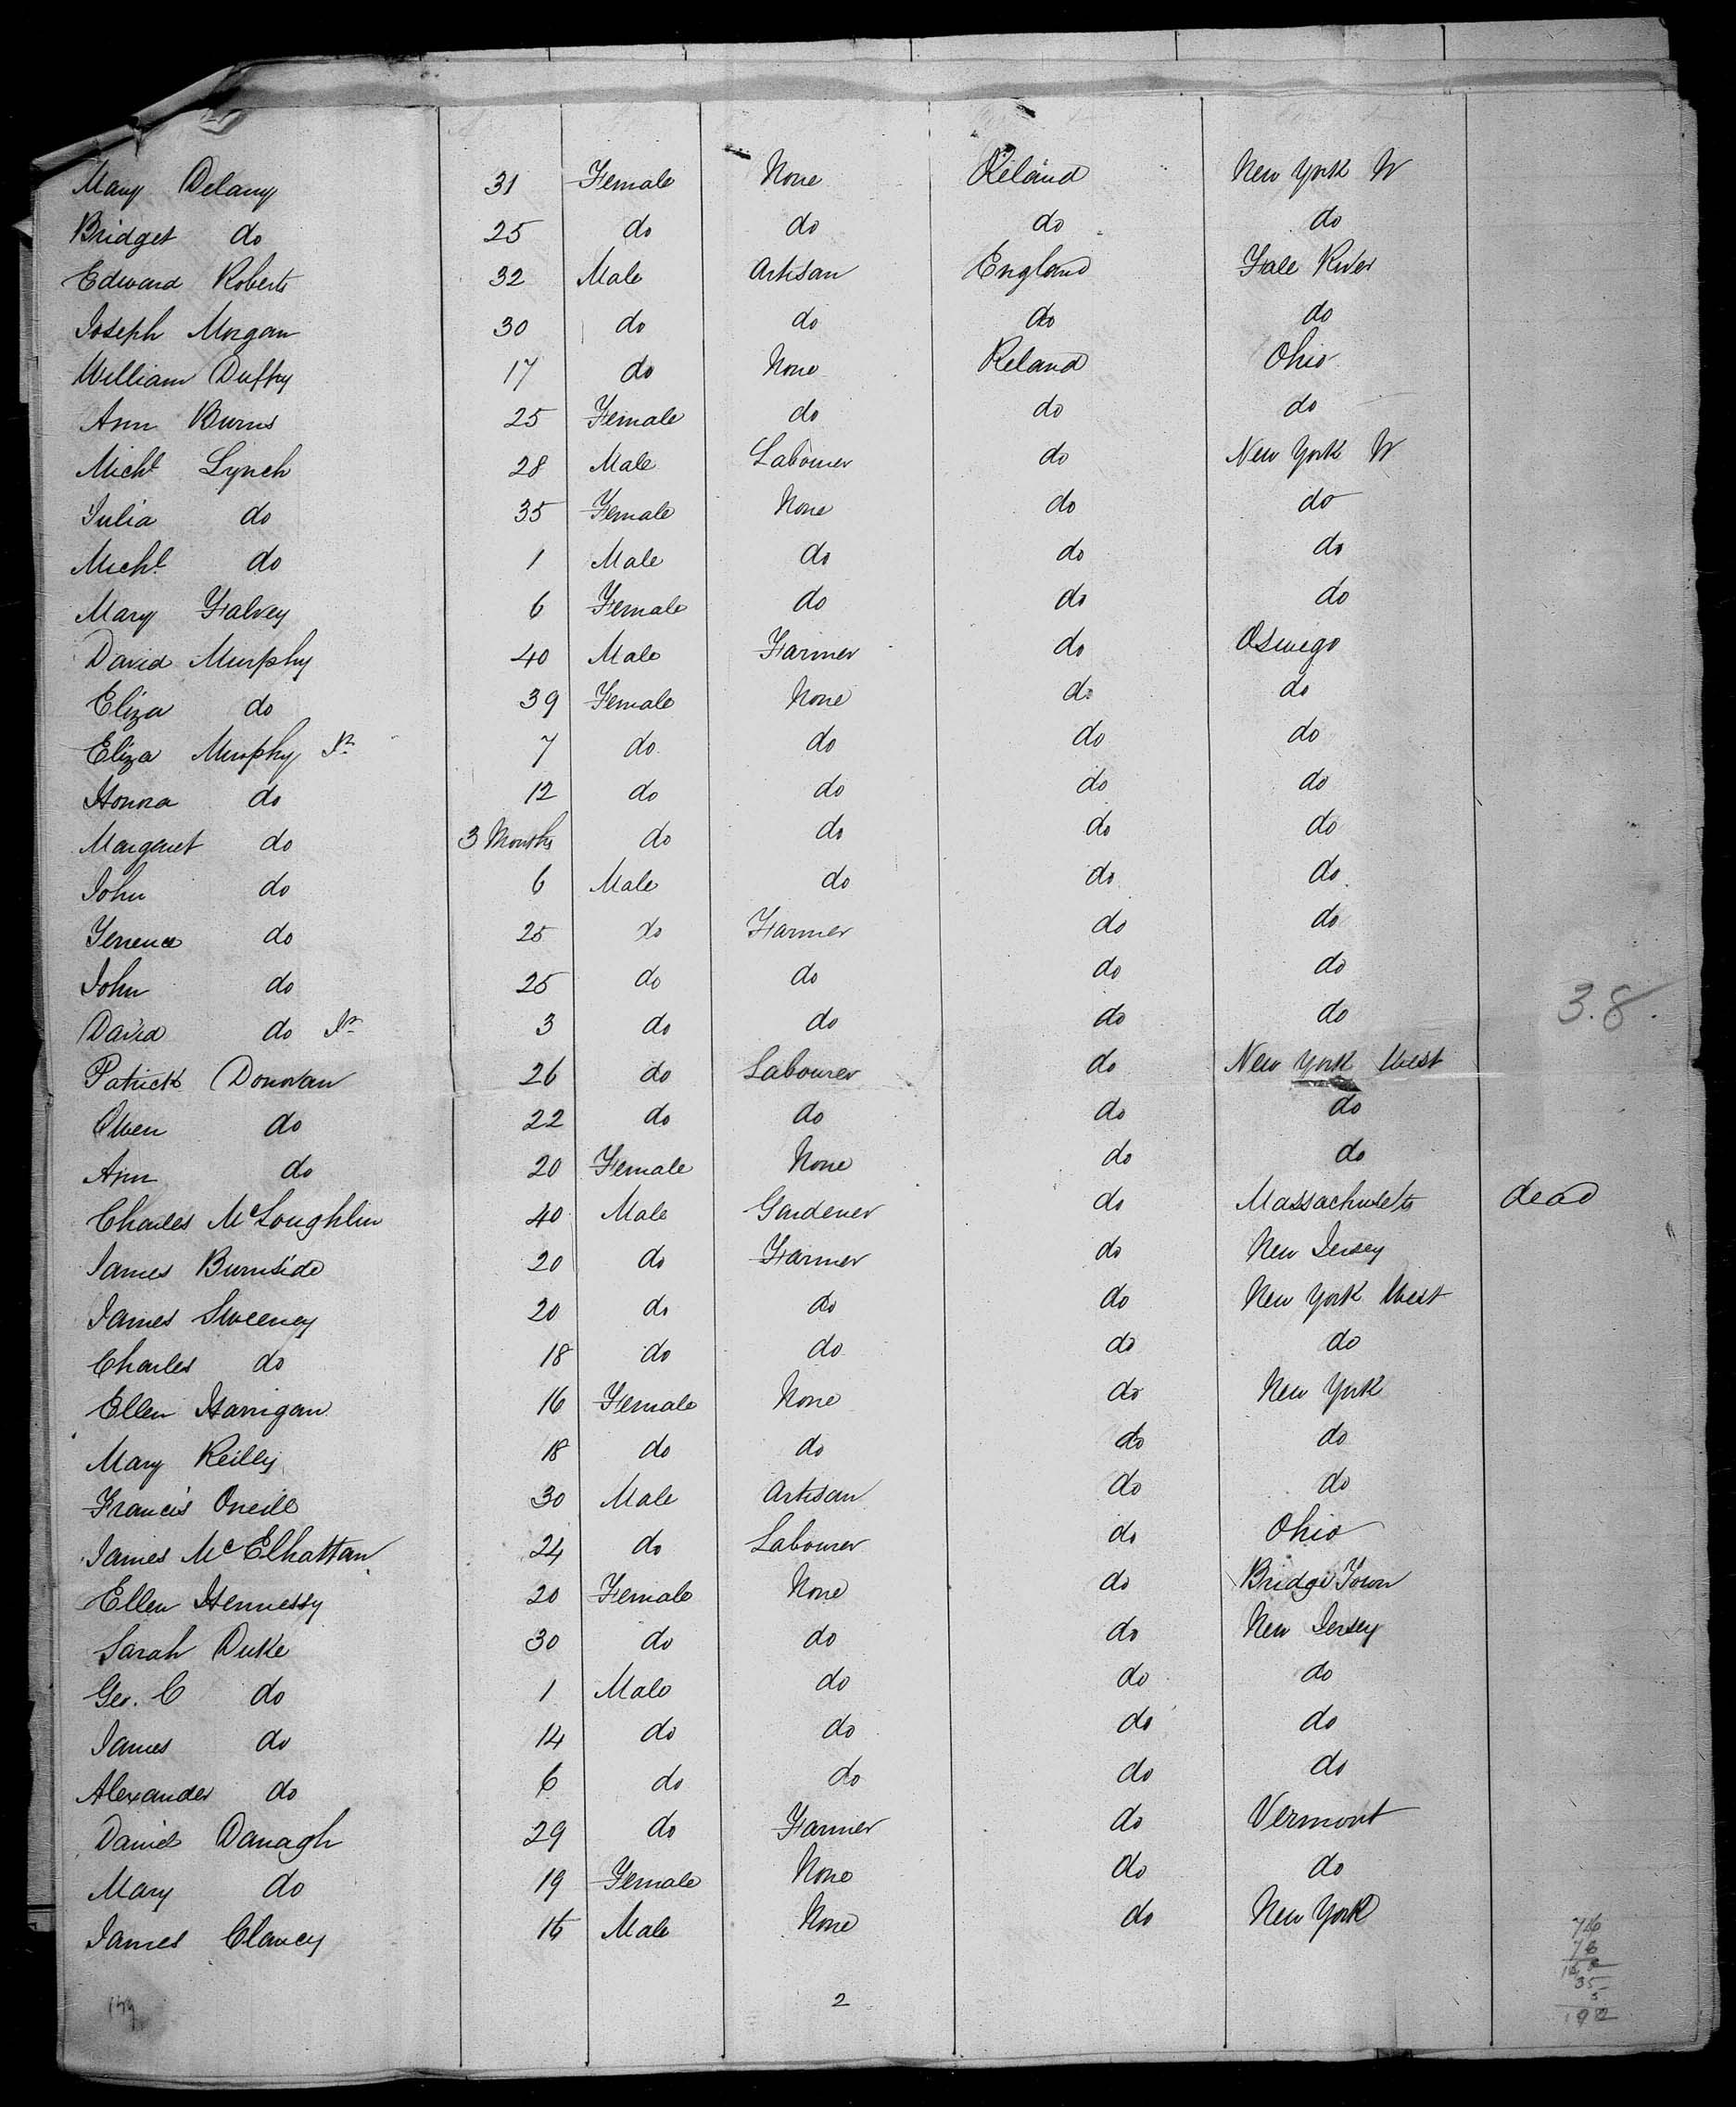 Mary Delany 31 Female None Ireland New York W
Bridget do 25 do do do do
Edward Roberts 32 Male Artisan England Fale River
Joseph Morgan 30 do do do do
William Duffy 17 do None Ireland Ohio
Ann Burns 25 Female do do do
Michl Lynch 28 Male Labourer do New York W
Julia do 35 Female None do do
Michl do 1 Male do do do
Mary Falvey 6 Female do do do
David Murphy 40 Male Farmer do Oswego
Eliza do 39 Female None do do
Eliza Murphy Jr 7 do do do do
Honora do 12 do do do do
Margaret do 3 Months do do do do
John do 6 Male do do do
Terrence do 25 do Farmer do do
John do 25 do do do do
David do Jr 3 do do do do
3.8.
Patrick Donovan 26 do Labourer do New York West
Owen do 22 do do do do
Ann do 20 Female None do do
Charles McLoughlin 40 Male Gardener do Massachusets dead
James Burnside 20 do Farmer do New Jersey
James Sweeney 20 do do do New York West
Charles do 18 do do do do
Ellen Harrigan 16 Female None do New York
Mary Reilly 18 do do do do
Francis Oneill 30 Male Artisan do do
James McElhattan 24 do Labourer do Ohio
Ellen Hennessy 20 Female None do Bridge Town
Sarah Duke 30 do do do New Jersey
Geo. C do 1 Male do do do
James do 14 do do do do
Alexander do 6 do do do do
Daniel Danagh 29 do Farmer do Vermont
Mary do 19 Female None do do
James Clancy 16 Male None do New York
76
76
152
35
5
192
2